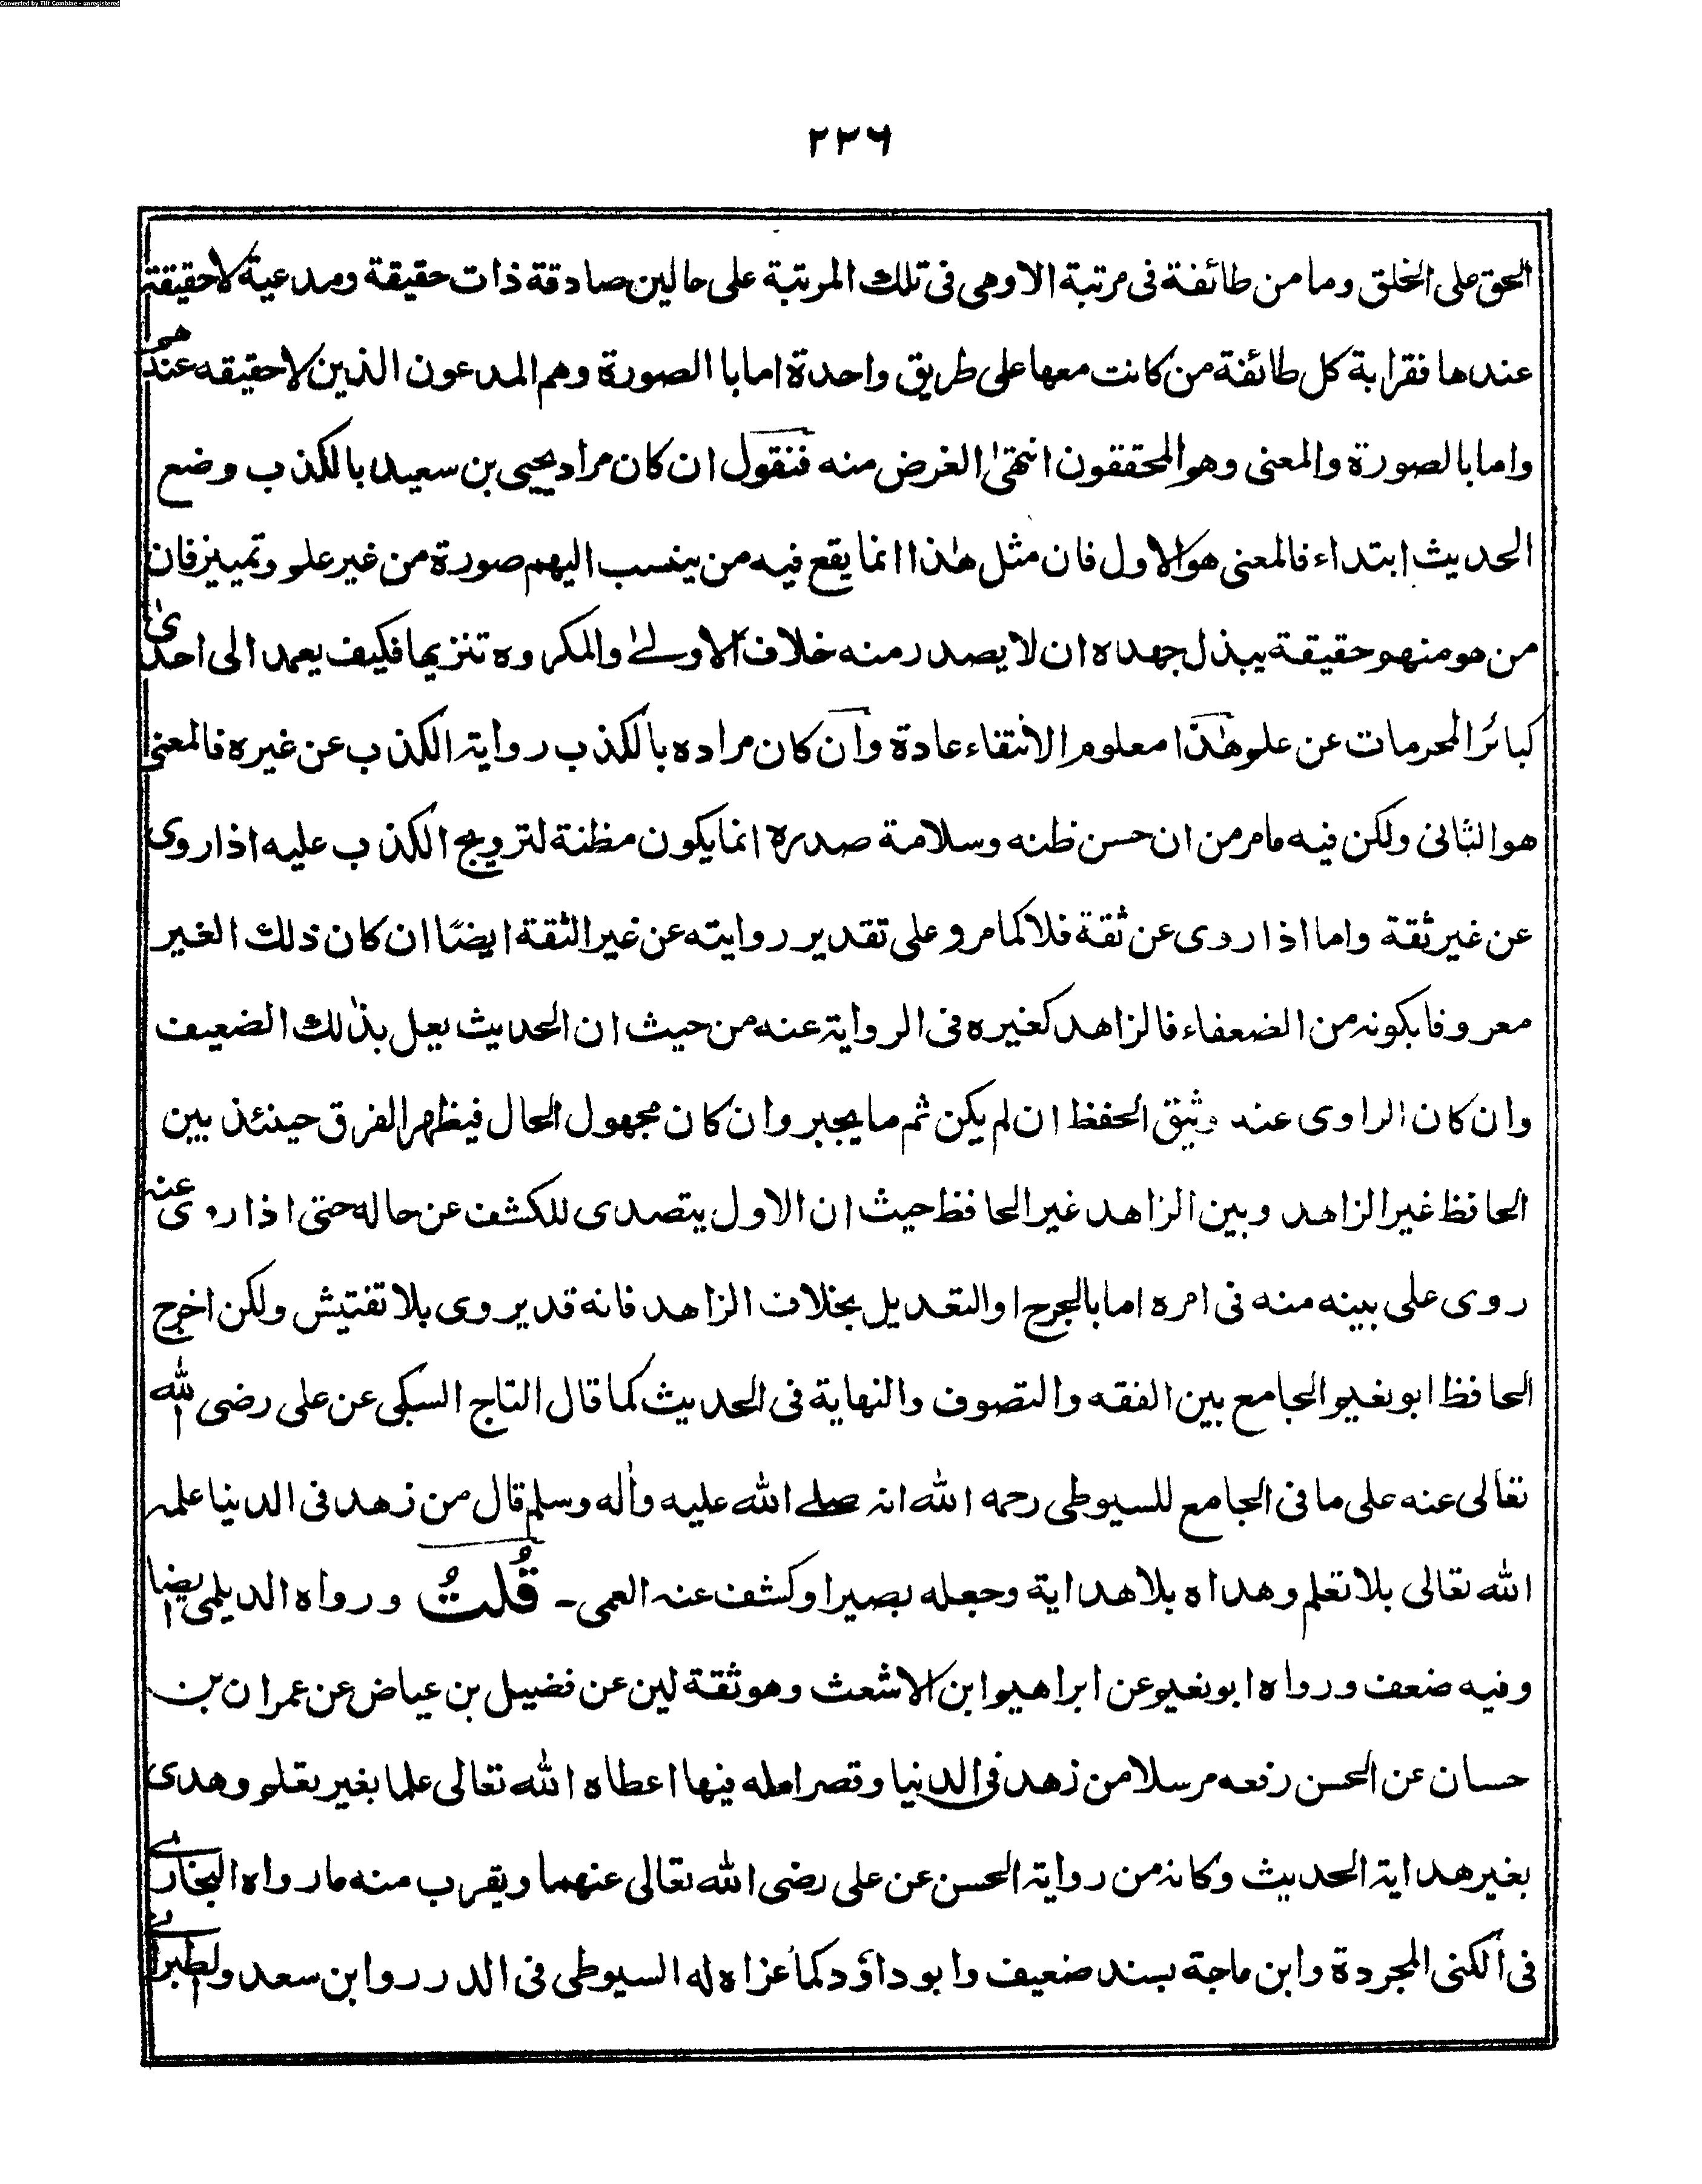 Converted by Tiff Combine - unregistered
٢٣٦
الحق على الخلق وما من طائفة فى مرتبة الا وهى فى تلك المرتبة على حالين صادقة ذات حقيقة ومدعية لاحقيقة
عندها فقرابة كل طائفة من كانت معها على طريق واحدة اما با الصورة وهم المدعون الذين لاحقيقه عندهم
واما بالصورة والمعنى وهو المحققون انتهى الغرض منه فنقول ان كان مراد يحيى بن سعيد بالكذب وضع
الحديث ابتداء فالمعنى هو الاول فان مثل هٰذا انما يقع فيه من ينسب اليهم صورة من غير علم وتمييز فان
من هو منهم حقيقة يبذل جهده ان لا يصدر منه خلاف الاولىٰ والمكروه تنزيها فكيف يعمد الى احدىٰ
كبائر المحرمات عن علم هٰذا معلوم الانتقاء عادة وان كان مراده بالكذب رواية الكذب عن غيره فالمعنى
هو الثانى ولكن فيه مامر من ان حسن ظنه وسلامة صدره انما يكون مظنة لترويج الكذب عليه اذا روى
عن غير ثقة واما اذا روى عن ثقة فلا كما مر وعلى تقدير روايته عن غير الثقة ايضًا ان كان ذلك الغير
معروفا بكونه من الضعفاء فالزاهد كغيره فى الرواية عنه من حيث ان الحديث يعل بذٰلك الضعيف
وان كان الراوى عنه وثيق الحفظ ان لم يكن ثم ما يجبر وان كان مجهول الحال فيظهر الفرق حينئذ بين
الحافظ غير الزاهد وبين الزاهد غير الحافظ حيث ان الاول يتصدى للكشف عن حاله حتى اذا روى عنه
روى على بينه منه فى امره اما بالجرح او التعديل بخلاف الزاهد فانه قد يروى بلا تفتيش ولكن اخرج
الحافظ ابو نعيم الجامع بين الفقه والتصوف والنهاية فى الحديث كما قال التاج السبكى عن على رضى الله
تعالى عنه على ما فى الجامع للسيوطى رحمه الله انه صلے الله عليه واٰله وسلم قال من زهد فى الدنيا علمه
الله تعالى بلا تعلم وهداه بلا هداية وجعله بصيرا وكشف عنه العمى ـ قُلتُ ورواه الديلمى ايضا
وفيه ضعف ورواه ابو نعيم عن ابراهيم ابن الاشعث وهو ثقة لين عن فضيل بن عياض عن عمران بن
حسان عن الحسن رفعه مرسلا من زهد فى الدنيا وقصر امله فيها اعطاه الله تعالى علما بغير تعلم وهدى
بغير هداية الحديث وكانه من رواية الحسن عن على رضى الله تعالى عنهما ويقرب منه ما رواه البخارے
فى الكنى المجردة وابن ماجة بسند ضعيف وابو داؤد كما عزاه له السيوطى فى الدرر وابن سعد والطبرانے